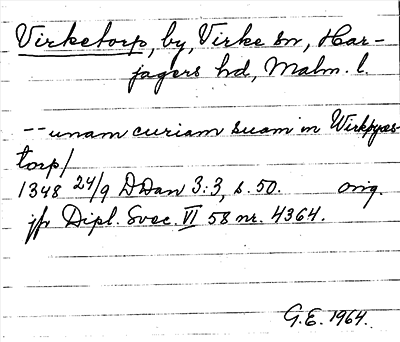 Virketorp, by, Virke sn, Har-
jagers hd, Malm. l.
-- unam curiam suam in Wirkpæs
torp/
1348 24/9 DDan 3:3, s. 50. orig.
jfr Dipl. Svec. VI 58 nr. 4364.
G.E. 1964.